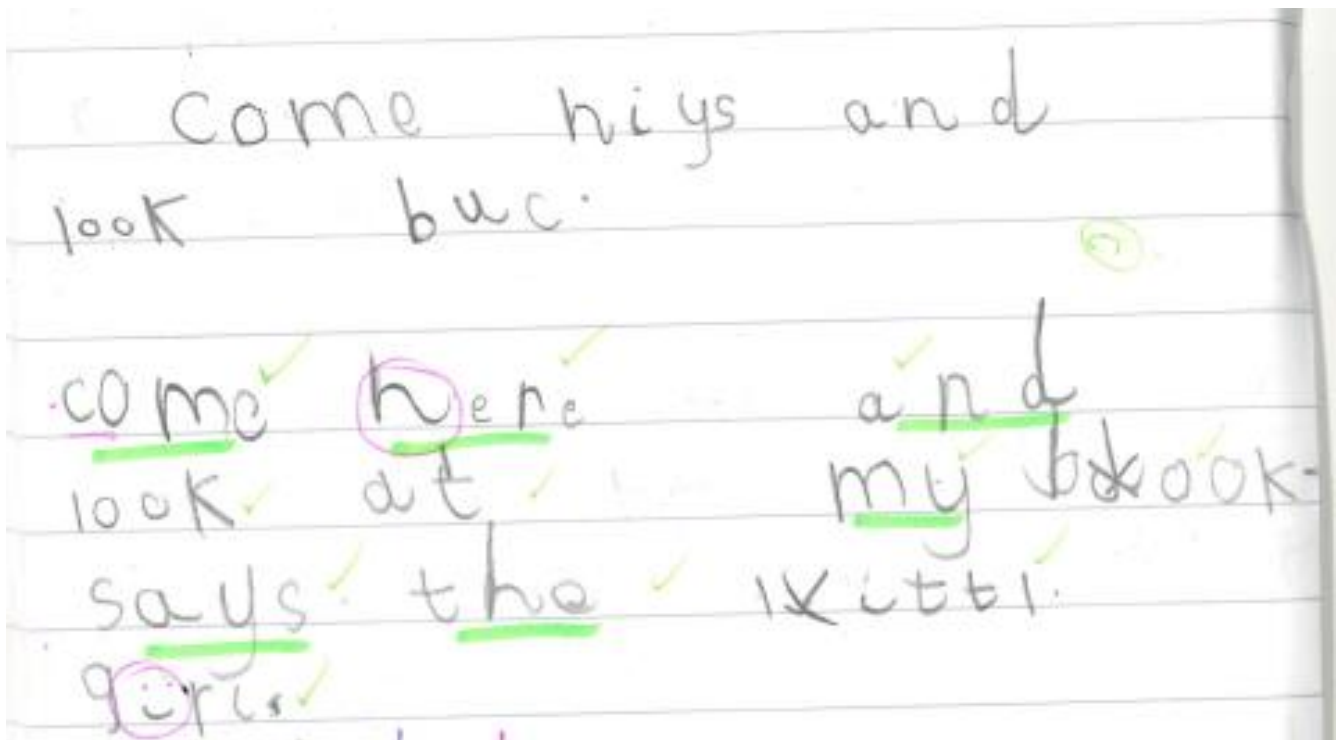 come hiys and
look buc.
come here and
look at my book.
says the Kittl.
girl.